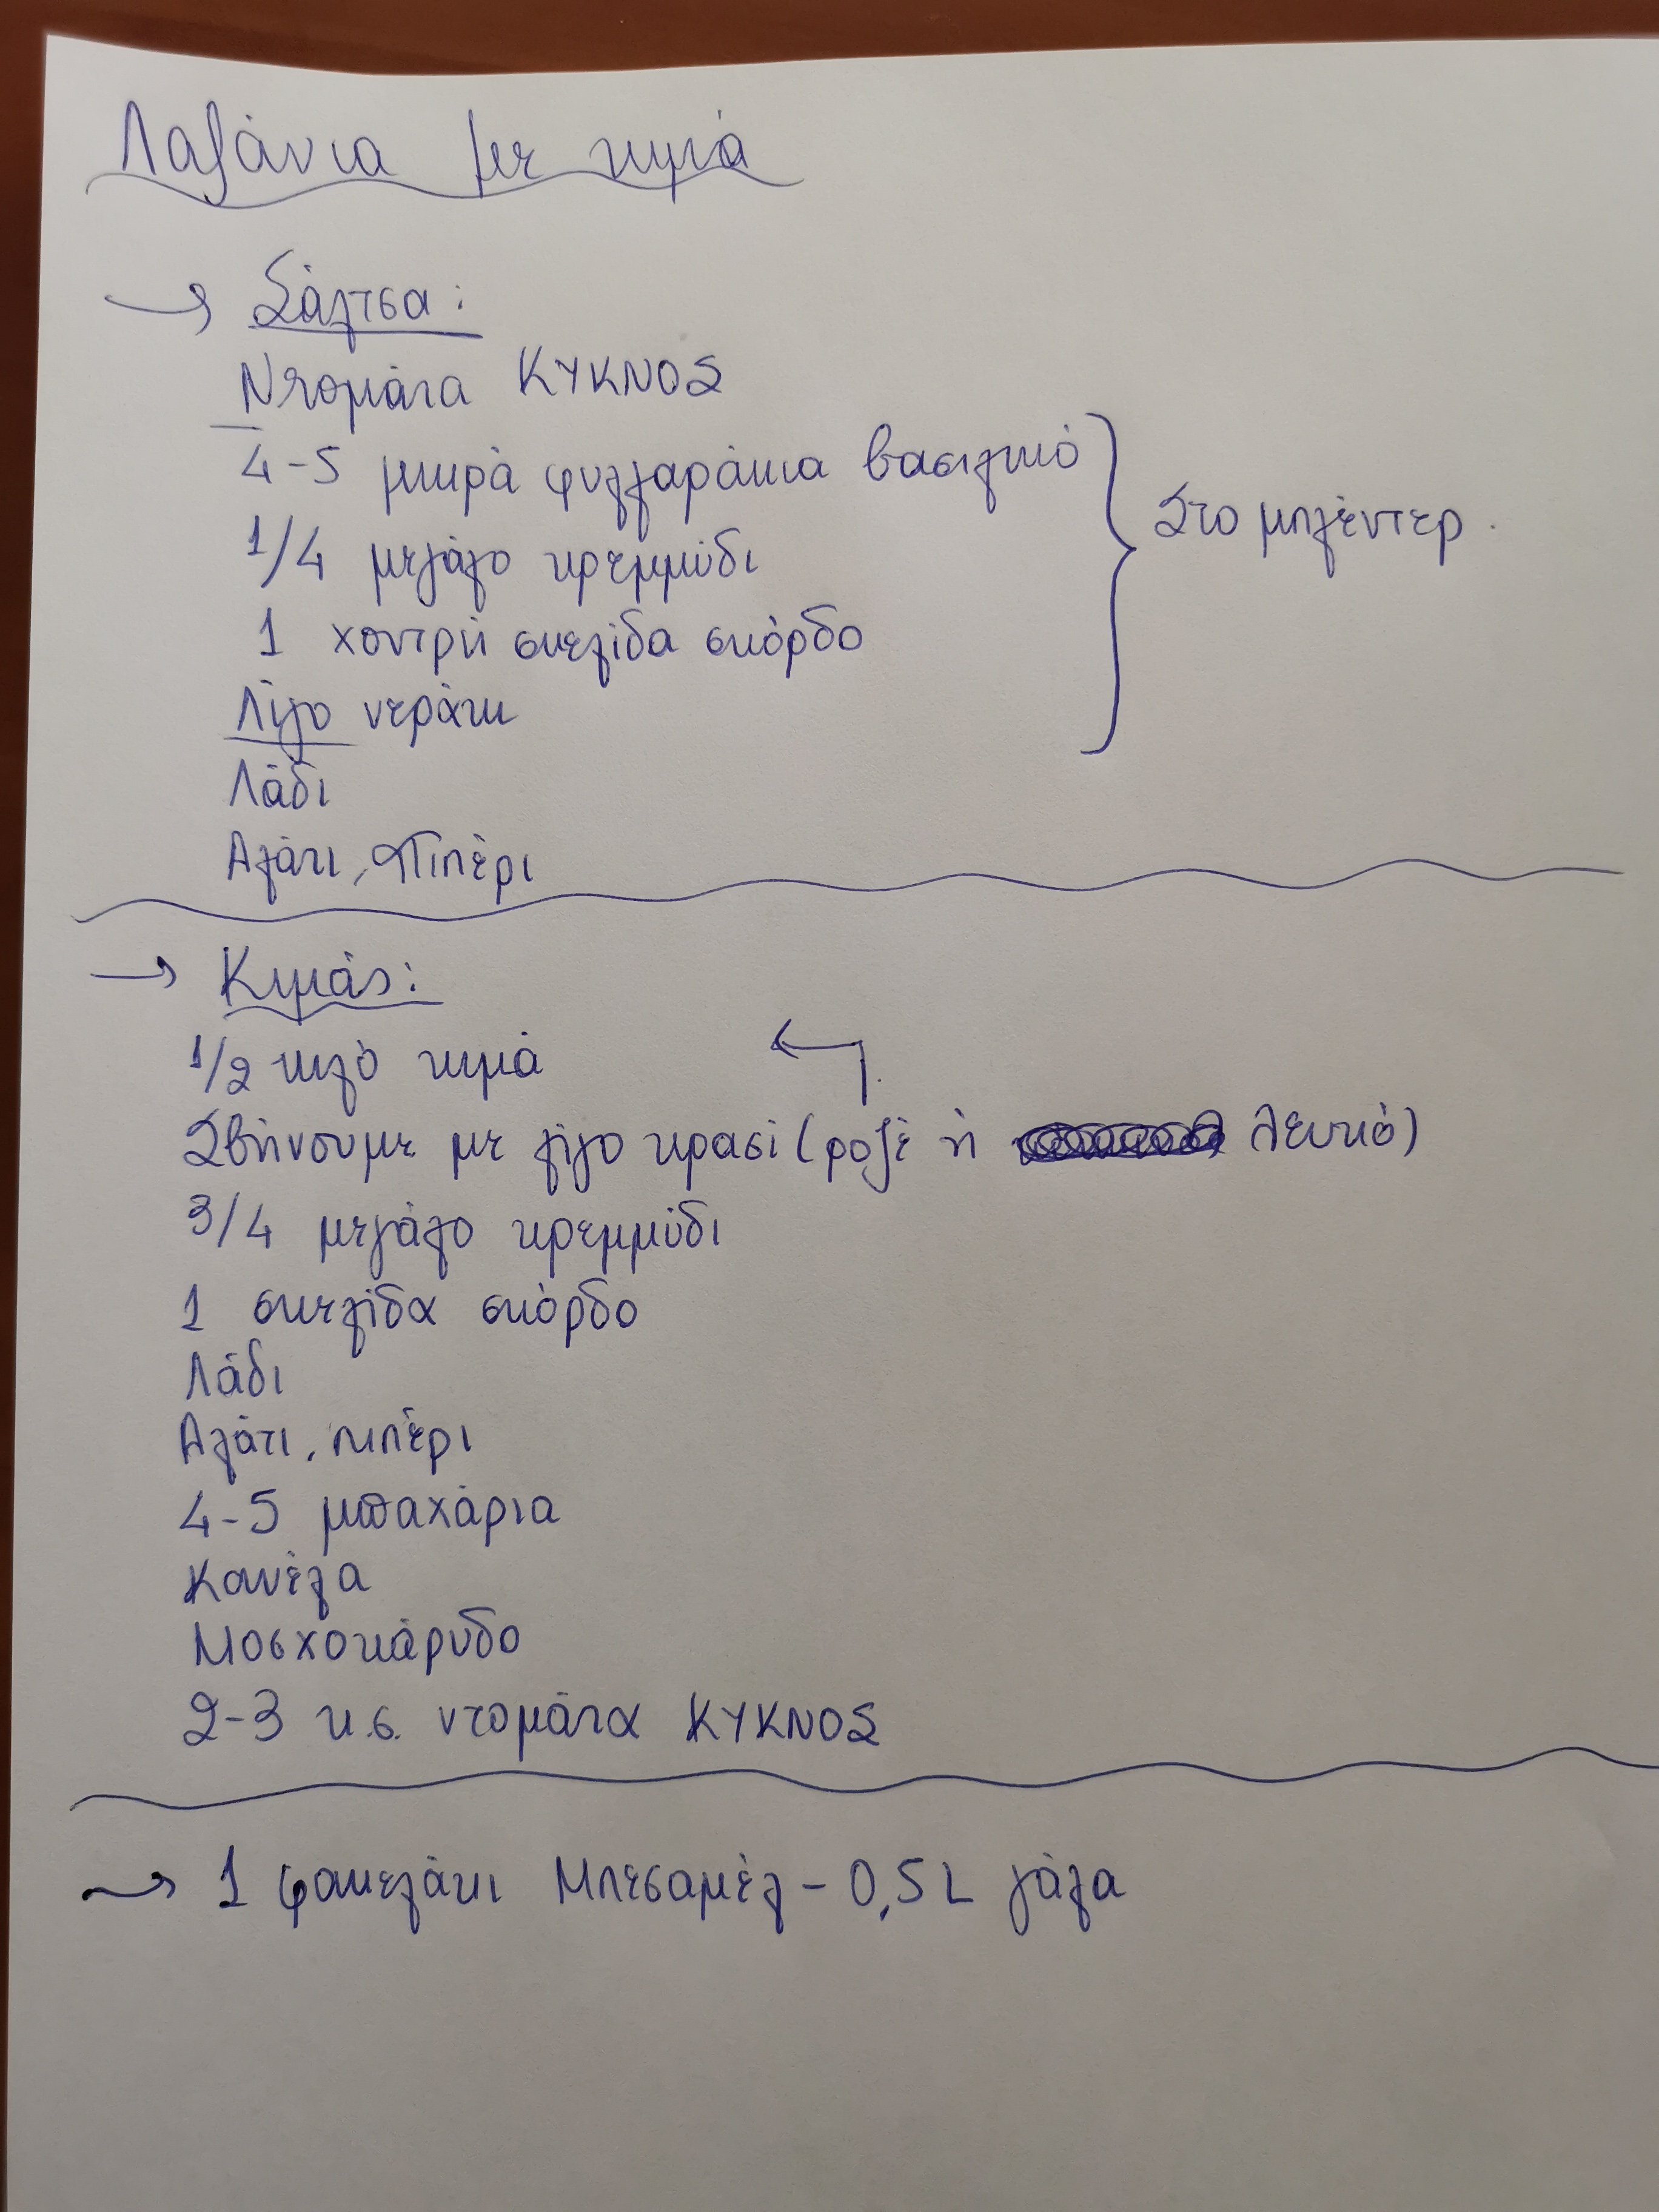 Λαζάνια με κιμά
Σάλτσα:
Ντομάτα ΚΥΚΝΟΣ
4-5 μικρά φυλλαράκια βασιλικό
1/4 μεγάλο κρεμμύδι
Στο μπλέντερ.
1 χοντρή σκελίδα σκόρδο
Λίγο νεράκι
Λάδι
Αλάτι, Πιπέρι
Κιμάς:
1/2 κιλό κιμά
Σβήνουμε με λίγο κρασί (ροζέ ή λευκό)
3/4 μεγάλο κρεμμύδι
1 σκελίδα σκόρδο
Λάδι
Αλάτι, πιπέρι
4-5 μπαχάρια
Κανέλα
Μοσχοκάρυδο
2-3 κ.σ. ντομάτα ΚΥΚΝΟΣ
1 φακελάκι Μπεσαμέλ - 0,5 L γάλα